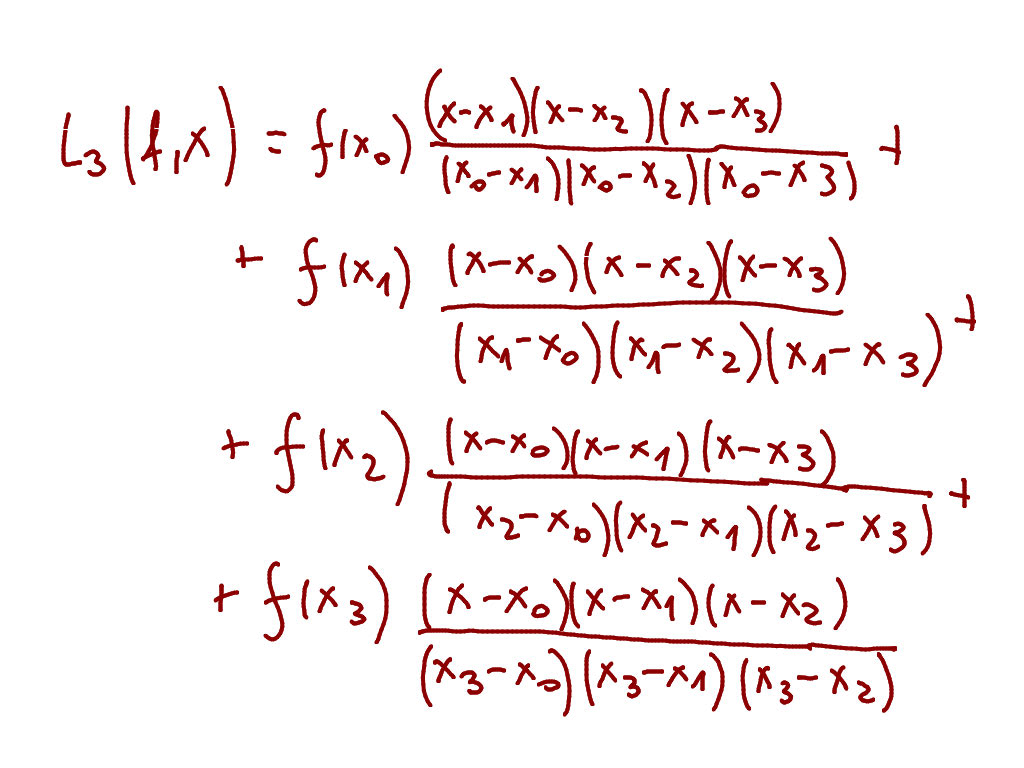 L₃(f,x) = f(x₀) ((x-x₁)(x-x₂)(x-x₃))/((x₀-x₁)(x₀-x₂)(x₀-x₃)) +
+ f(x₁) ((x-x₀)(x-x₂)(x-x₃))/((x₁-x₀)(x₁-x₂)(x₁-x₃)) +
+ f(x₂) ((x-x₀)(x-x₁)(x-x₃))/((x₂-x₀)(x₂-x₁)(x₂-x₃)) +
+ f(x₃) ((x-x₀)(x-x₁)(x-x₂))/((x₃-x₀)(x₃-x₁)(x₃-x₂))